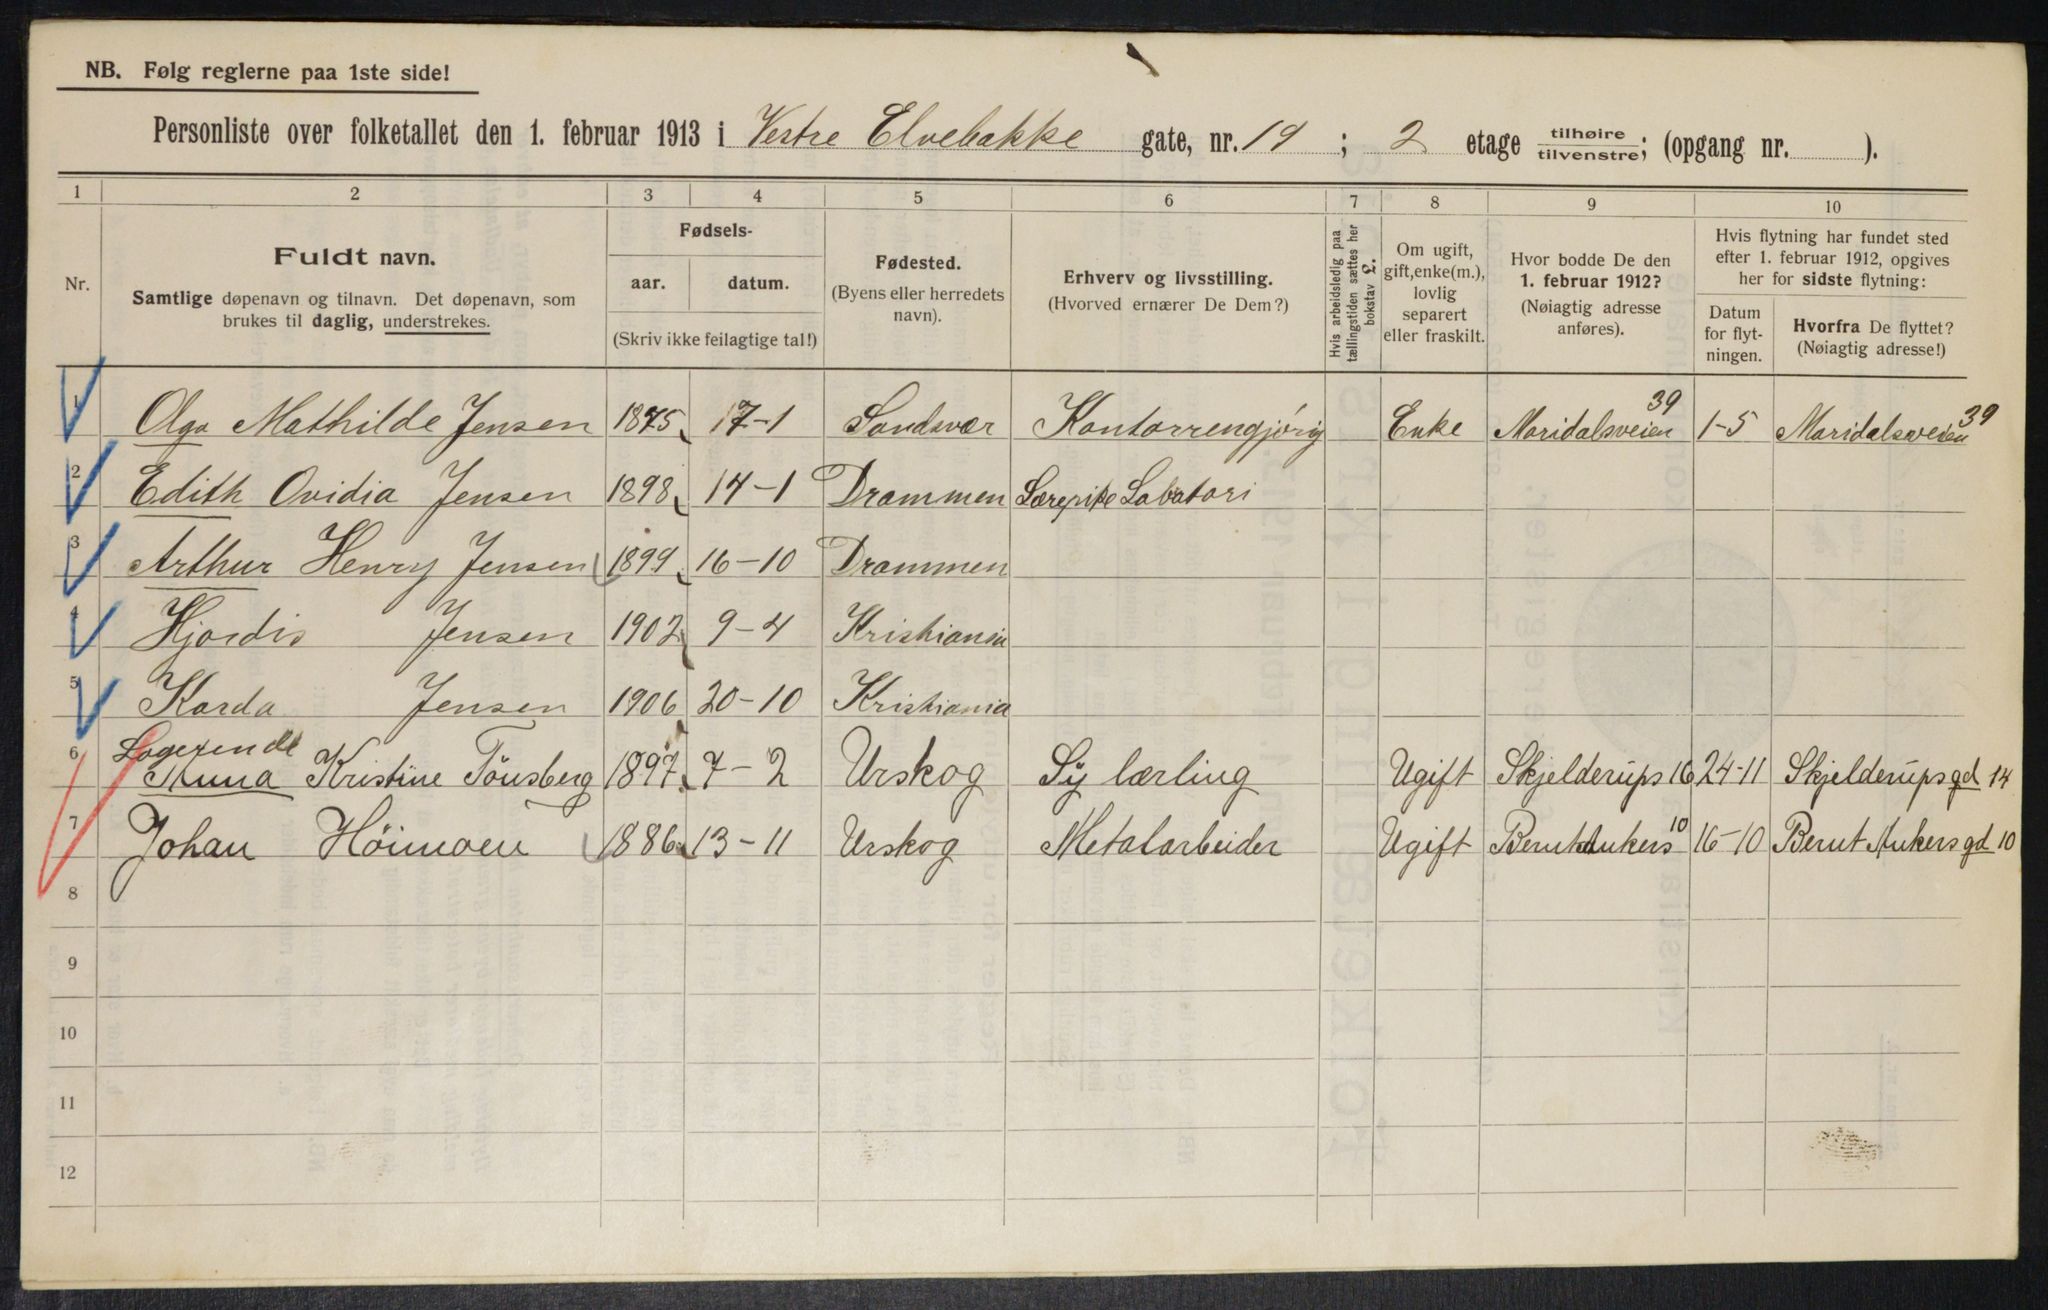 NB. Følg reglerne paa 1ste side!
Personliste over folketallet den 1. februar 1913 i Vestre Elvebakke gate, nr. 19 ; 2 etage tilhøire/tilvenstre; (opgang nr. ).
1 2 3 4 5 6 7 8 9 10
Nr.
Fuldt navn.
Samtlige døpenavn og tilnavn. Det døpenavn, som
brukes til daglig, understrekes.
Fødsels-
aar. datum.
(Skriv ikke feilagtige tal!)
Fødested.
(Byens eller herredets
navn).
Erhverv og livsstilling.
(Hvorved ernærer De Dem?)
Hvis arbeidsledig paa
tællingstiden sættes her
bokstav £.
Om ugift,
gift, enke(m.),
lovlig
separert
eller fraskilt.
Hvor bodde De den
1. februar 1912?
(Nøiagtig adresse
anføres).
Hvis flytning har fundet sted
efter 1. februar 1912, opgives
her for sidste flytning:
Datum
for flyt-
ningen.
Hvorfra De flyttet?
(Nøiagtig adresse!)
1 Olga Mathilde Jensen 1875 17-1 Sandsvær Kontorrengjöring Enke Maridalsveien 39 1-5 Maridalsveien 39
2 Edith Ovidia Jensen 1898 14-1 Drammen Lærepike Labatori
3 Arthur Henry Jensen 1899 16-10 Drammen
4 Hjordis Jensen 1902 9-4 Kristiania
5 Karda Jensen 1906 20-10 Kristiania
Logerende
6 Anna Kristine Tönsberg 1897 7-2 Urskog Sy lærling Ugift Skjelderups 16 24-11 Skjelderups gd 14
7 Johan Höimoen 1886 13-11 Urskog Metalarbeider Ugift Bernt Ankers 10 16-10 Bernt Ankers gd 10
8
9
10
11
12